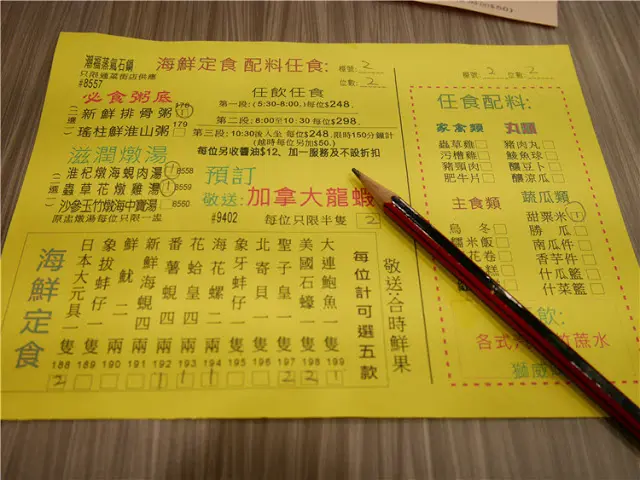 港福蒸氣石鍋
只限通菜街店供應
#8557
海鮮定食 配料任食:
檯號: 2
位數: 2
必食粥底
(二選一)
新鮮排骨粥 178 1
瑤柱鮮淮山粥 179
任飲任食
第一段: (5:30-8:00.) 每位$248.
第二段: 8:00至10:30 每位$298.
第三段: 10:30後入坐 每位$248, 限時150分鐘計
(越時每位另加$50.)
每位另收醬油$12、加一服務及不設折扣
滋潤燉湯
(三選一)
淮杞燉海蜆肉湯 1 8558
蟲草花燉雞湯 1 8559
沙參玉竹燉海中寶湯 8560
原盅燉湯每位只限一盅
預訂
敬送: 加拿大龍蝦
#9402
每位只限半隻 2
海鮮定食
日本大元貝一隻 188 2
象拔蚌仔一隻 189
鮮魷二兩 190
新鮮海蜆四兩 191
番薯蜆四兩 192 1
花蛤皇四兩 193 1
海花螺二兩 194 1
象牙蚌仔一隻 195
北寄貝一隻 196
聖子皇一隻 197 2
美國石蠔一隻 198 2
大連鮑魚一隻 199 1
每位計可選五款
敬送:合時鮮果
檯號: 2
位數: 2
任食配料:
家禽類
蟲草雞
污槽雞
豬頸肉
肥牛片
丸類
豬肉丸
鯪魚球
釀豆卜
釀涼瓜
主食類
烏冬
糯米飯
花卷
糕
蔬瓜類
甜粟米 1
勝瓜
南瓜件
香芋件
什瓜籃
什菜籃
飲:
各式汽
竹蔗水
獅威